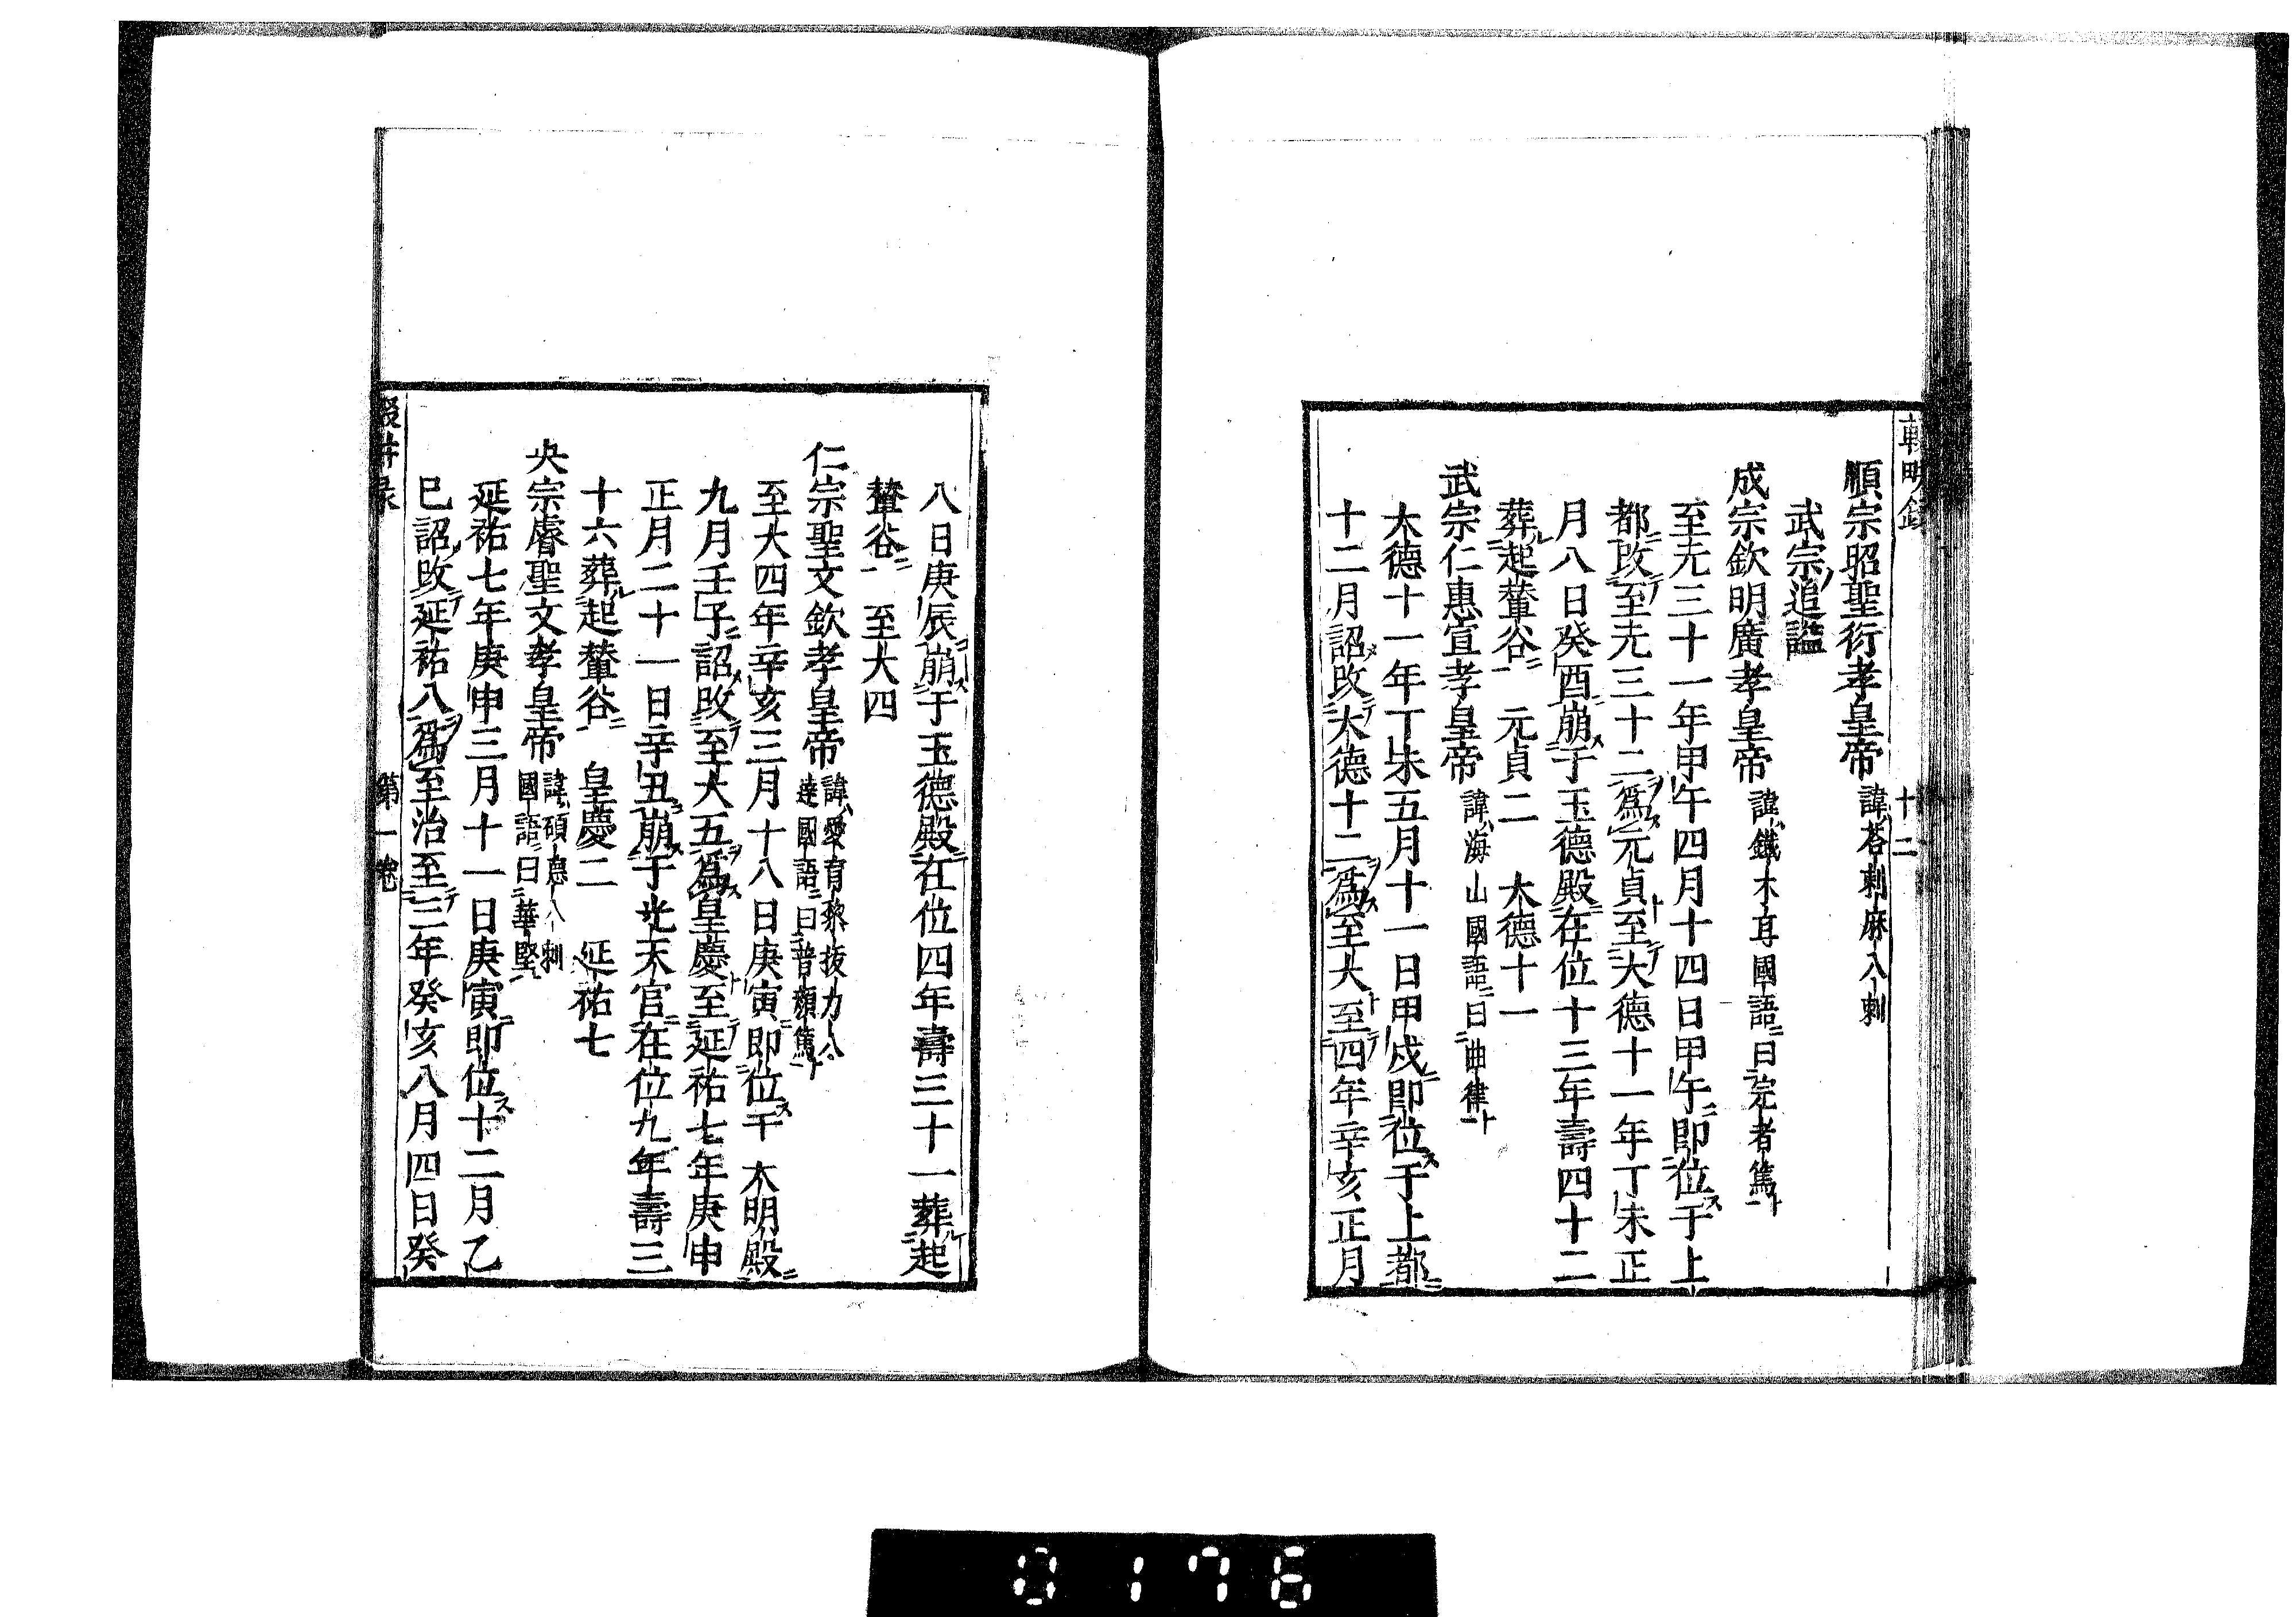 輟畊録 十二
順宗昭聖衍孝皇帝 諱荅剌麻八剌
武宗追謚
成宗欽明廣孝皇帝 諱鐵木耳國語曰完者篤
至元三十一年甲午四月十四日甲午即位于上
都改至元三十二爲元貞至大德十一年丁未正
月八日癸酉崩于玉德殿在位十三年壽四十二
葬起輦谷 元貞二 大德十一
武宗仁惠宣孝皇帝 諱海山國語曰曲律
大德十一年丁未五月十一日甲戍即位于上都
十二月詔改大德十二爲至大至四年辛亥正月
八日庚辰崩于玉德殿在位四年壽三十一葬起
輦谷 至大四
仁宗聖文欽孝皇帝 諱愛育黎拔力八
達國語曰普顏篤
至大四年辛亥三月十八日庚寅即位于大明殿
九月壬子詔改至大五爲皇慶至延祐七年庚申
正月二十一日辛丑崩于光天宮在位九年壽三
十六葬起輦谷 皇慶二 延祐七
央宗睿聖文孝皇帝 諱碩德八剌
國語曰華堅
延祐七年庚申三月十一日庚寅即位十二月乙
巳詔改延祐八爲至治至三年癸亥八月四日癸
輟畊录 第一卷
0176